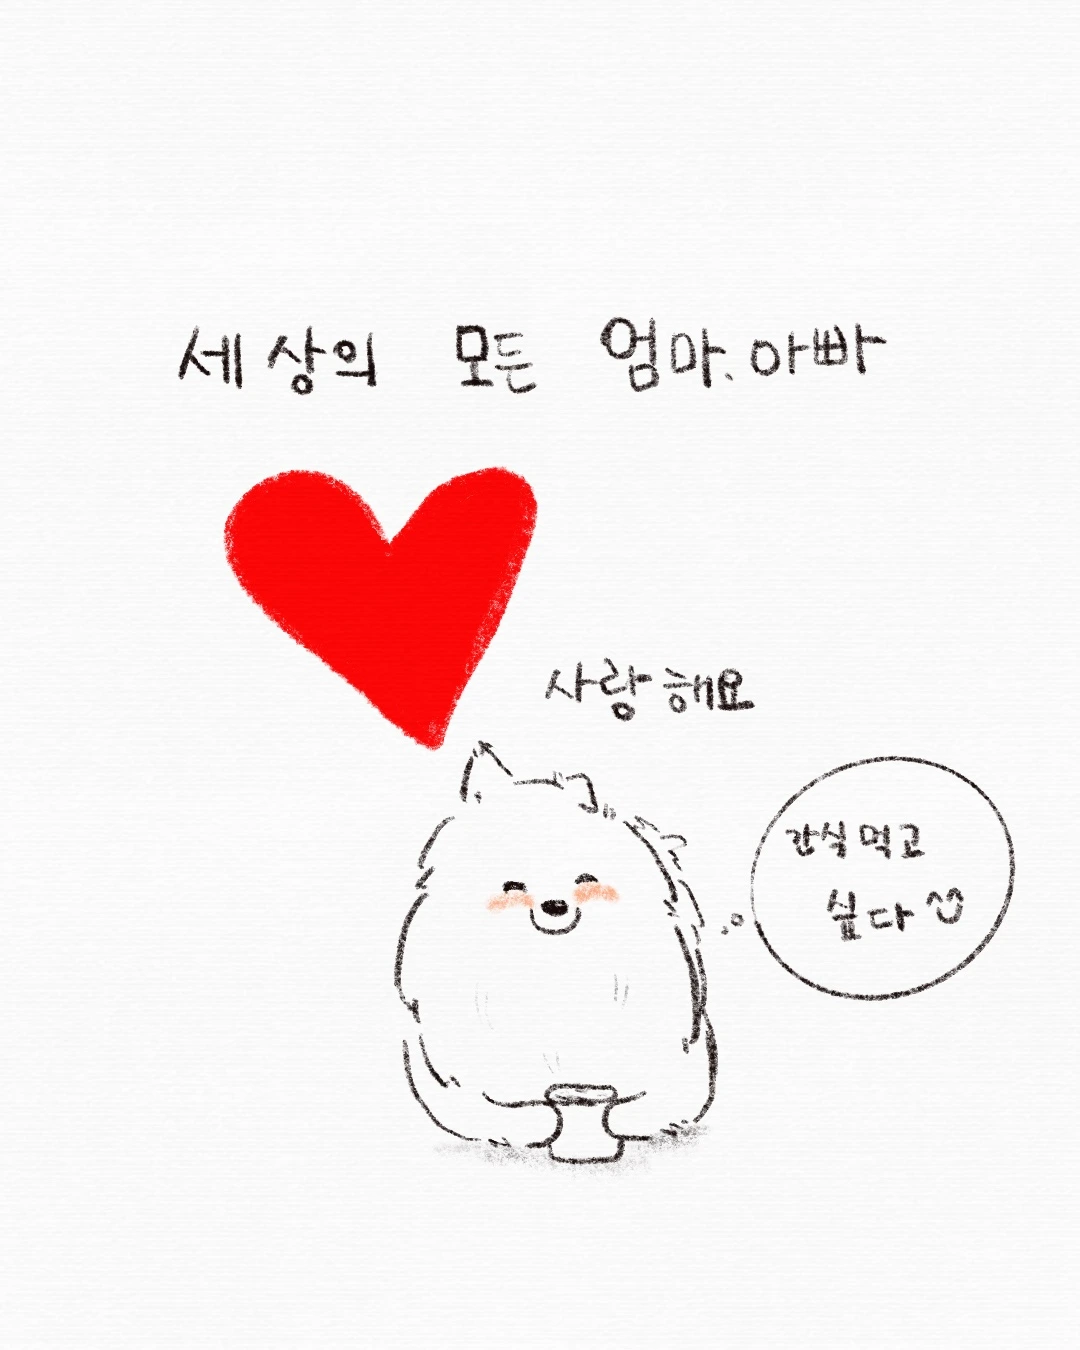 세상의 모든 엄마.아빠
사랑해요
간식 먹고
싶다